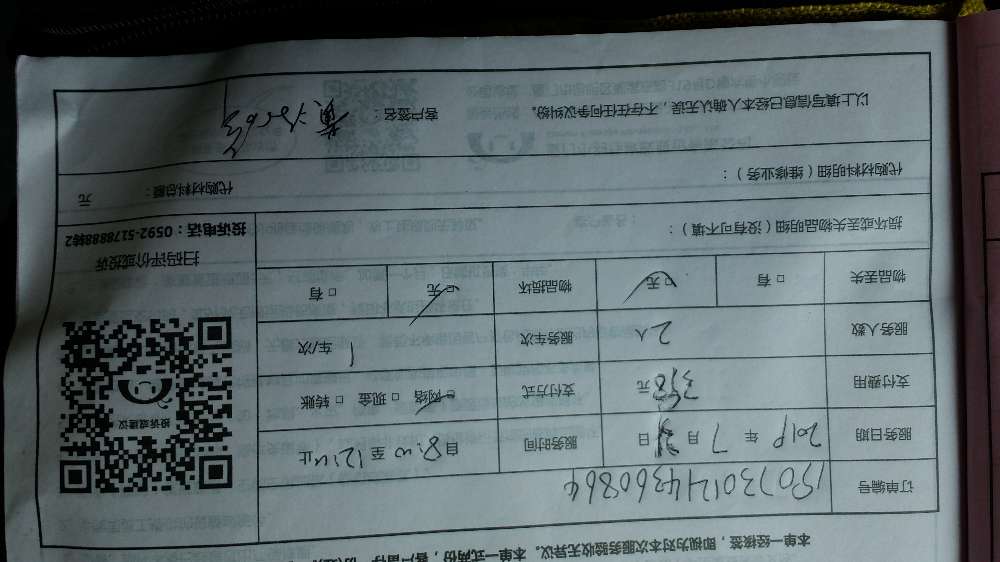 本单一经核签，即视为对本次服务验收无异议。本单一式两份，客户留存
订单编号
服务日期 年 7 月 日 服务时间 自 8:00 至 12:00 止
支付费用 元 支付方式 ☑网络 □ 现金 □ 转账
服务人数 2人 服务车次 1 车/次
物品丢失 □ 有 ☑无 物品损坏 ☑无 □ 有
投诉或建议
扫码评价或投诉
投诉电话：0592-5178888转2
损坏或丢失物品明细（没有可不填）：
代购材料明细（维修业务）： 代购材料总额： 元
以上填写信息已经本人确认无误，不存在任何争议纠纷。 客户签名：